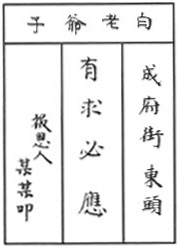 白老爺子
成府街東頭
有求必應
报恩人
某某叩